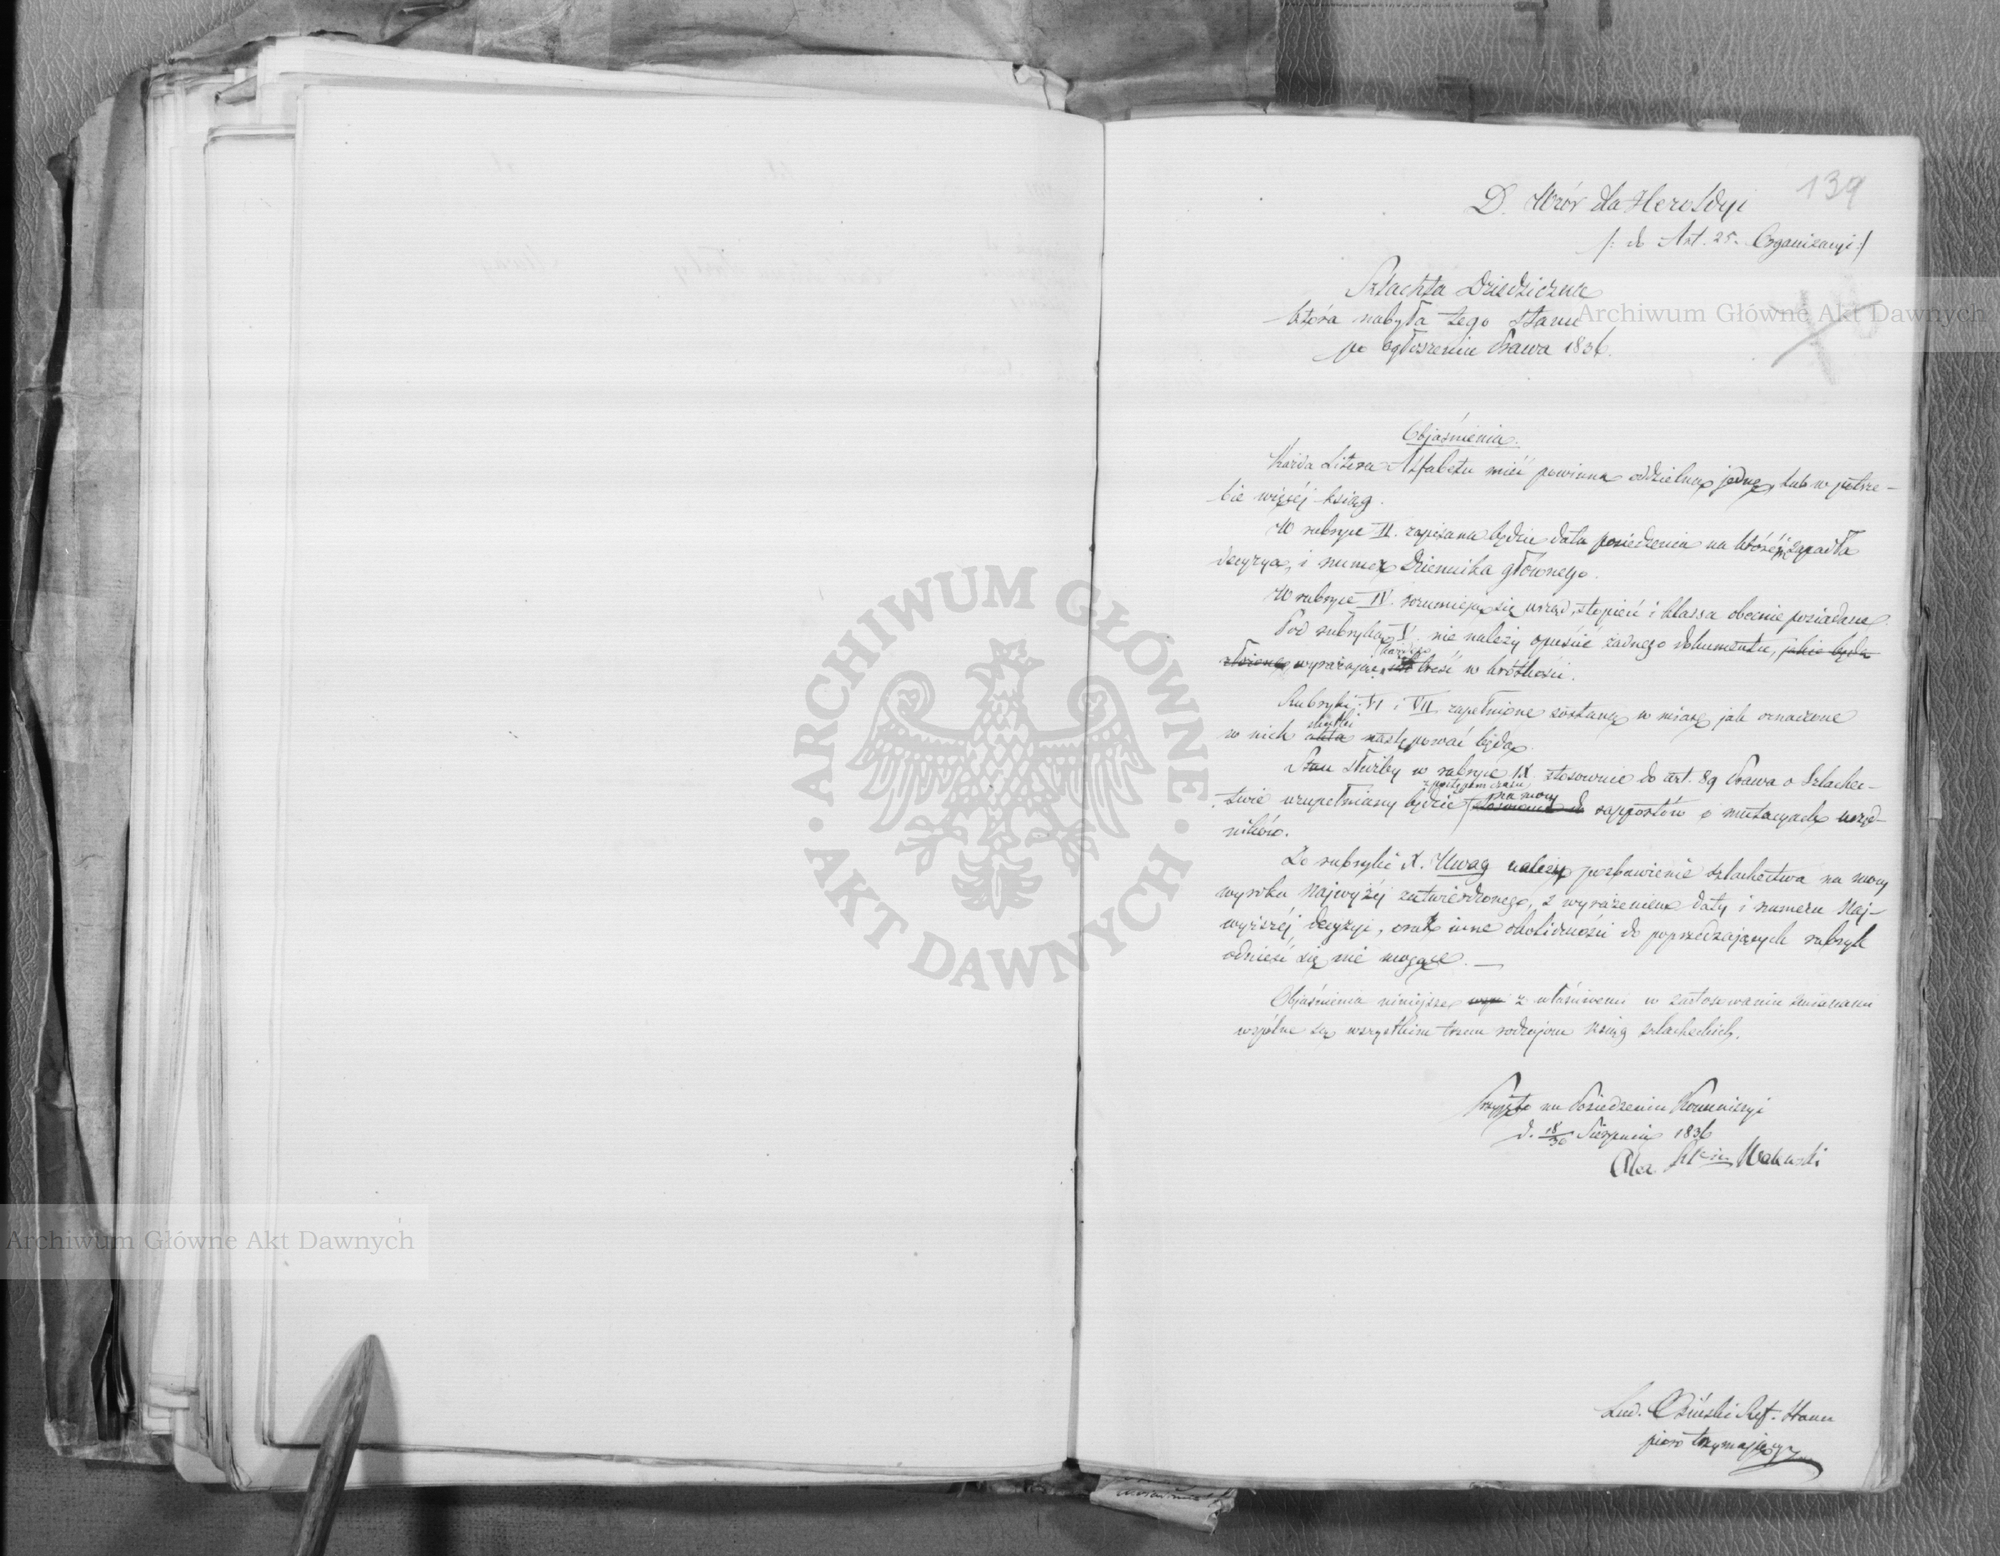 139
D. Wzór dla Heroldyi
/: do Art. 25. Organizacyi :/
Szlachta Dziedziczna
która nabyła tego stanu
po ogłoszeniu Prawa 1836.
Objaśnienia.
Każda Litera Alfabetu mieć powinna oddzielną jedną, lub w potrze-
bie więcéj ksiąg.
W rubryce II. zapisana będzie data posiedzenia na któréj zapadła
decyzya, i numer Dziennika głównego.
W rubryce IV. rozumieją się urząd, stopień i klassa obecnie posiadane.
Pod rubryką V. nie należy opuścić żadnego dokumentu, jakie będą
złożone wyrażając każdego treść w krótkości.
Rubryki VI i VII zapełnione zostaną w miarę jak oznaczone
skutki
w nich akta następować będą.
Stan służby w rubryce IX stosownie do art. 89 Prawa o Szlachec-
z postępem czasu
na mocy
twie uzupełniany będzie stosownie do rapportów o mutacyach urzęd-
ników.
Do rubryki X. Uwag należy pozbawienie szlachectwa na mocy
wyroku Najwyżéj zatwierdzonego, z wyrażeniem daty i numeru Naj-
wyższéj decyzyi, oraz inne okoliczności do poprzedzających rubryk
odnieść się nie mogące. —
Objaśnienia niniejsze z właściwemi w zastosowaniu zmianami
wspólne są wszystkim trzem rodzajom ksiąg szlacheckich.
Przyjęto na Posiedzeniu Kommissyi
d. 18/30 Sierpnia 1836
Alex Walewski
Lud. Osiński Ref. Stanu
pióro trzymający
Archiwum Główne Akt Dawnych
Archiwum Główne Akt Dawnych
ARCHIWUM GŁÓWNE · AKT DAWNYCH ·